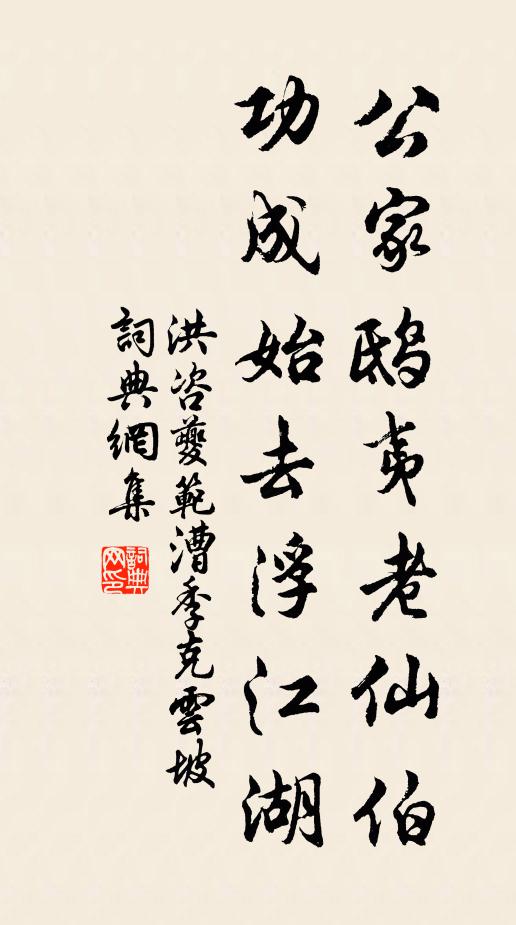 公家鴟夷老仙伯
功成始去浮江湖
洪咨夔範漕季克雲坡
詞典網集
詞典网印